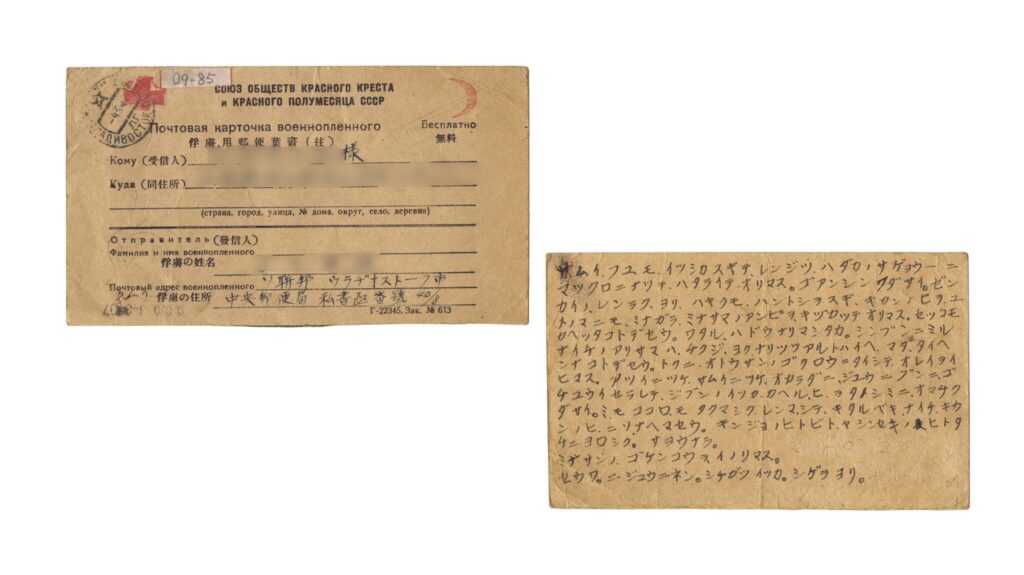 09-85
СОЮЗ ОБЩЕСТВ КРАСНОГО КРЕСТА
и КРАСНОГО ПОЛУМЕСЯЦА СССР
Почтовая карточка военнопленного
Бесплатно
俘虜用郵便葉書(往)
無料
Кому (受信人) 様
Куда (同住所)
(страна, город, улица, № дома, округ, село, деревня)
Отправитель (發信人)
Фамилия и имя военнопленного
俘虜の姓名
ソ聯邦 ウラヂオストーク市
Почтовый адрес военнопленного
俘虜の住所 中央郵便局 私書函番號
Г-22345. Зак. № 613
サムイ、フユモ、イツシカスギテ、レンジツ、ハダカノサゲョウーニ
マックロニナリテ、ハタライテ、オリマス。ゴアンシンクダサイ。ゼン
カイノ、レンラクヨリ、ハヤクモ、ハントシヲスギ、キカンノヒヲ、ユ
メノマニモ、ミナガラ、ミナサマノアンピヲ、キヅカッテオリマス。セツコモ
カヘッタコトデセウ。ワタル、ハドウナリマシタカ。シンブンニミル
ナイチノアリサマハ、チクジ、ヨクナリツツアルトハイヘ、マダ、タイヘ
ンナコトデセウ。トクニ、オトウサンノゴクロウニタイシテ、オレイヲイ
ヒマス。アツイニツケ、サムイニツケ、オカラダニ、ジュウニブンニ、ゴ
チュウイセラレテ、ジブンノイツカ、カヘル、ヒヲタノシミニ、オマチク
ダサイ。ミモココロモタクマシク、レンマシテ、キタルベキ、ナイチ、キカ
ンノヒニソナヘマセウ。キンジョノヒトビトヤシンセキノヒトタ
チニヨロシク。サヨウナラ。
ミナサンノ、ゴケンコウヲイノリマス。
セウワ。ニジュウニネン。シチガツイツカ。シゲヲヨリ。